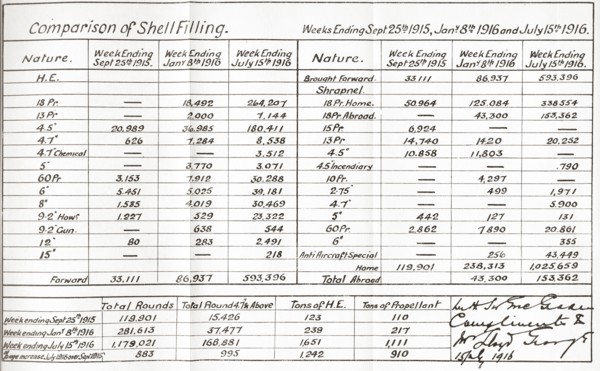 Comparison of Shell Filling.
Weeks Ending Sept 25th 1915, Jany 8th 1916 and July 15th 1916.
Nature. Week Ending Sept 25th 1915. Week Ending Jany 8th 1916 Week Ending July 15th 1916
H.E.
18 Pr. — 18,492 264,207
13 Pr — 2,000 7,144
4.5" 20,989 36,985 180,411
4.7" 626 7,284 8,538
4.7" Chemical — — 3,512
5" — 3,770 3,071
60 Pr. 3,153 7,912 30,288
6" 5,451 5,025 39,181
8" 1,585 4,019 30,469
9.2" Howr 1,227 529 23,322
9.2" Gun. — 638 544
12" 80 283 2,491
15" — — 218
Forward 33,111 86,937 593,396
Nature. Week Ending Sept 25th 1915. Week Ending Jany 8th 1916 Week Ending July 15th 1916
Brought Forward. 33,111 86,937 593,396
Shrapnel.
18 Pr. Home. 50,964 125,084 338,554
18 Pr. Abroad. — 43,300 153,362
15 Pr 6,924 — —
13 Pr 14,740 1420 20,252
4.5" 10,858 11,803 —
4.5" Incendiary — — 790
10 Pr. — 4,297 —
2.75" — 499 1,971
4.7" — — 5,900
5" 442 127 131
60 Pr. 2,862 7,890 20,861
6" — — 355
Anti Aircraft Special — 256 43,449
Home 119,901 238,313 1,025,659
Total Abroad 43,300 153,362
Total Rounds Total Round 4.7" & Above Tons of H.E. Tons of Propellant
Week ending Sept 25th 1915 119,901 15,426 123 110
Week ending Jany 8th 1916 281,613 37,477 239 217
Week ending July 15th 1916 1,179,021 168,881 1,651 1,111
%age increase July 1916 over Sept 1915 883 995 1,242 910
Compliments
Mr Lloyd George
15 July 1916